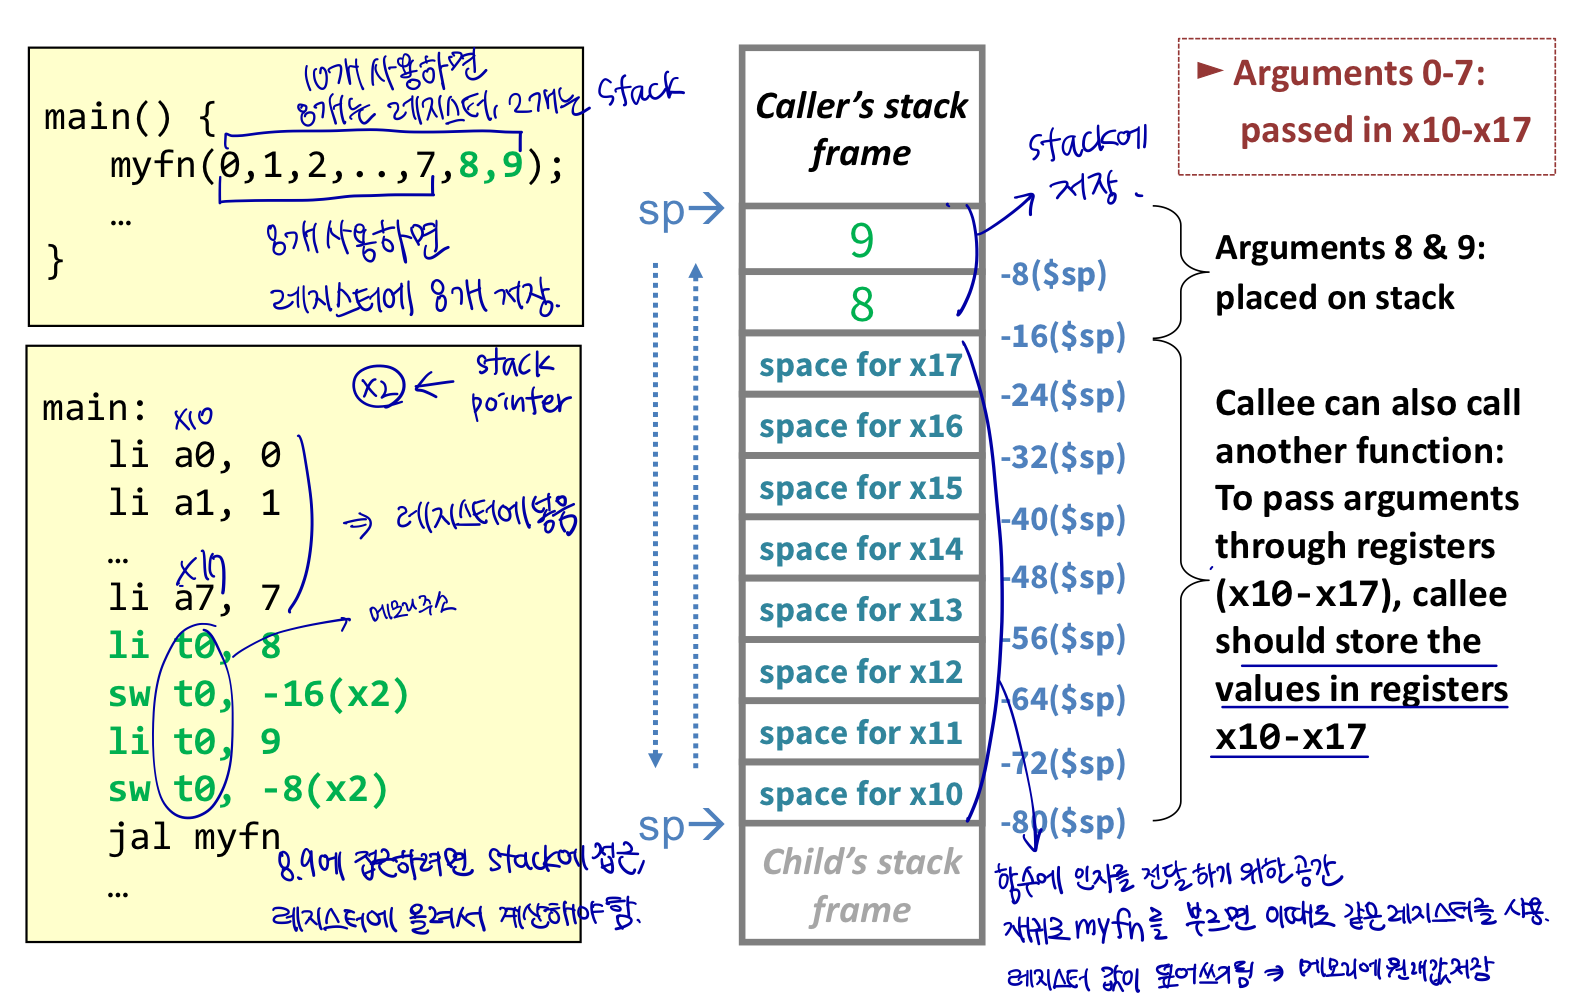 10개 사용하면
8개는 레지스터, 2개는 stack
main() {
myfn(0,1,2,..,7,8,9);
…
}
8개 사용하면
레지스터에 8개 저장.
x2 ← stack pointer
main:
x10
li a0, 0
li a1, 1
…
⇒ 레지스터에 넣음
x17
li a7, 7
메모리주소
li t0, 8
sw t0, -16(x2)
li t0, 9
sw t0, -8(x2)
jal myfn
…
8.9에 접근하려면 stack에 접근,
레지스터에 올려서 계산해야 함.
Caller's stack
frame
sp→
9
8
space for x17
space for x16
space for x15
space for x14
space for x13
space for x12
space for x11
space for x10
sp→
Child's stack
frame
stack에
저장.
-8($sp)
-16($sp)
-24($sp)
-32($sp)
-40($sp)
-48($sp)
-56($sp)
-64($sp)
-72($sp)
-80($sp)
► Arguments 0-7:
passed in x10-x17
Arguments 8 & 9:
placed on stack
Callee can also call
another function:
To pass arguments
through registers
(x10-x17), callee
should store the
values in registers
x10-x17
함수에 인자를 전달하기 위한 공간
재귀로 myfn을 부르면 이때도 같은 레지스터를 사용.
레지스터 값이 덮어쓰기됨 ⇒ 메모리에 원래값 저장